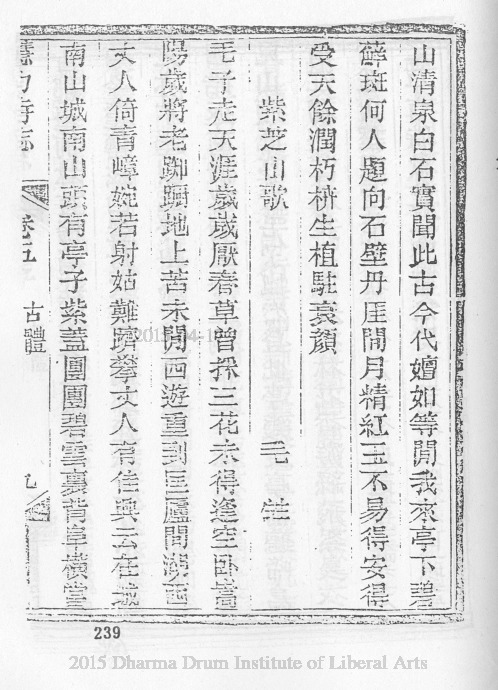 山清泉白石實聞此古今代嬗如等閒我來亭下碧
蘚斑何人題向石壁丹厓間月精紅玉不易得安得
受天餘潤朽枿生植駐衰顏
紫芝山歌 毛 甡
毛子走天涯歲歲厭春草曾採三花未得逢空卧嵩
陽歲將老踟躕地上苦未閒西遊重到匡廬間漢西
丈人倚青嶂婉若射姑難躋攀丈人有佳興云在城
南山城南山頭有亭子紫蓋團團碧雲裏昔年橫堂
府志 卷五 古體 九
239
2015 Dharma Drum Institute of Liberal Arts